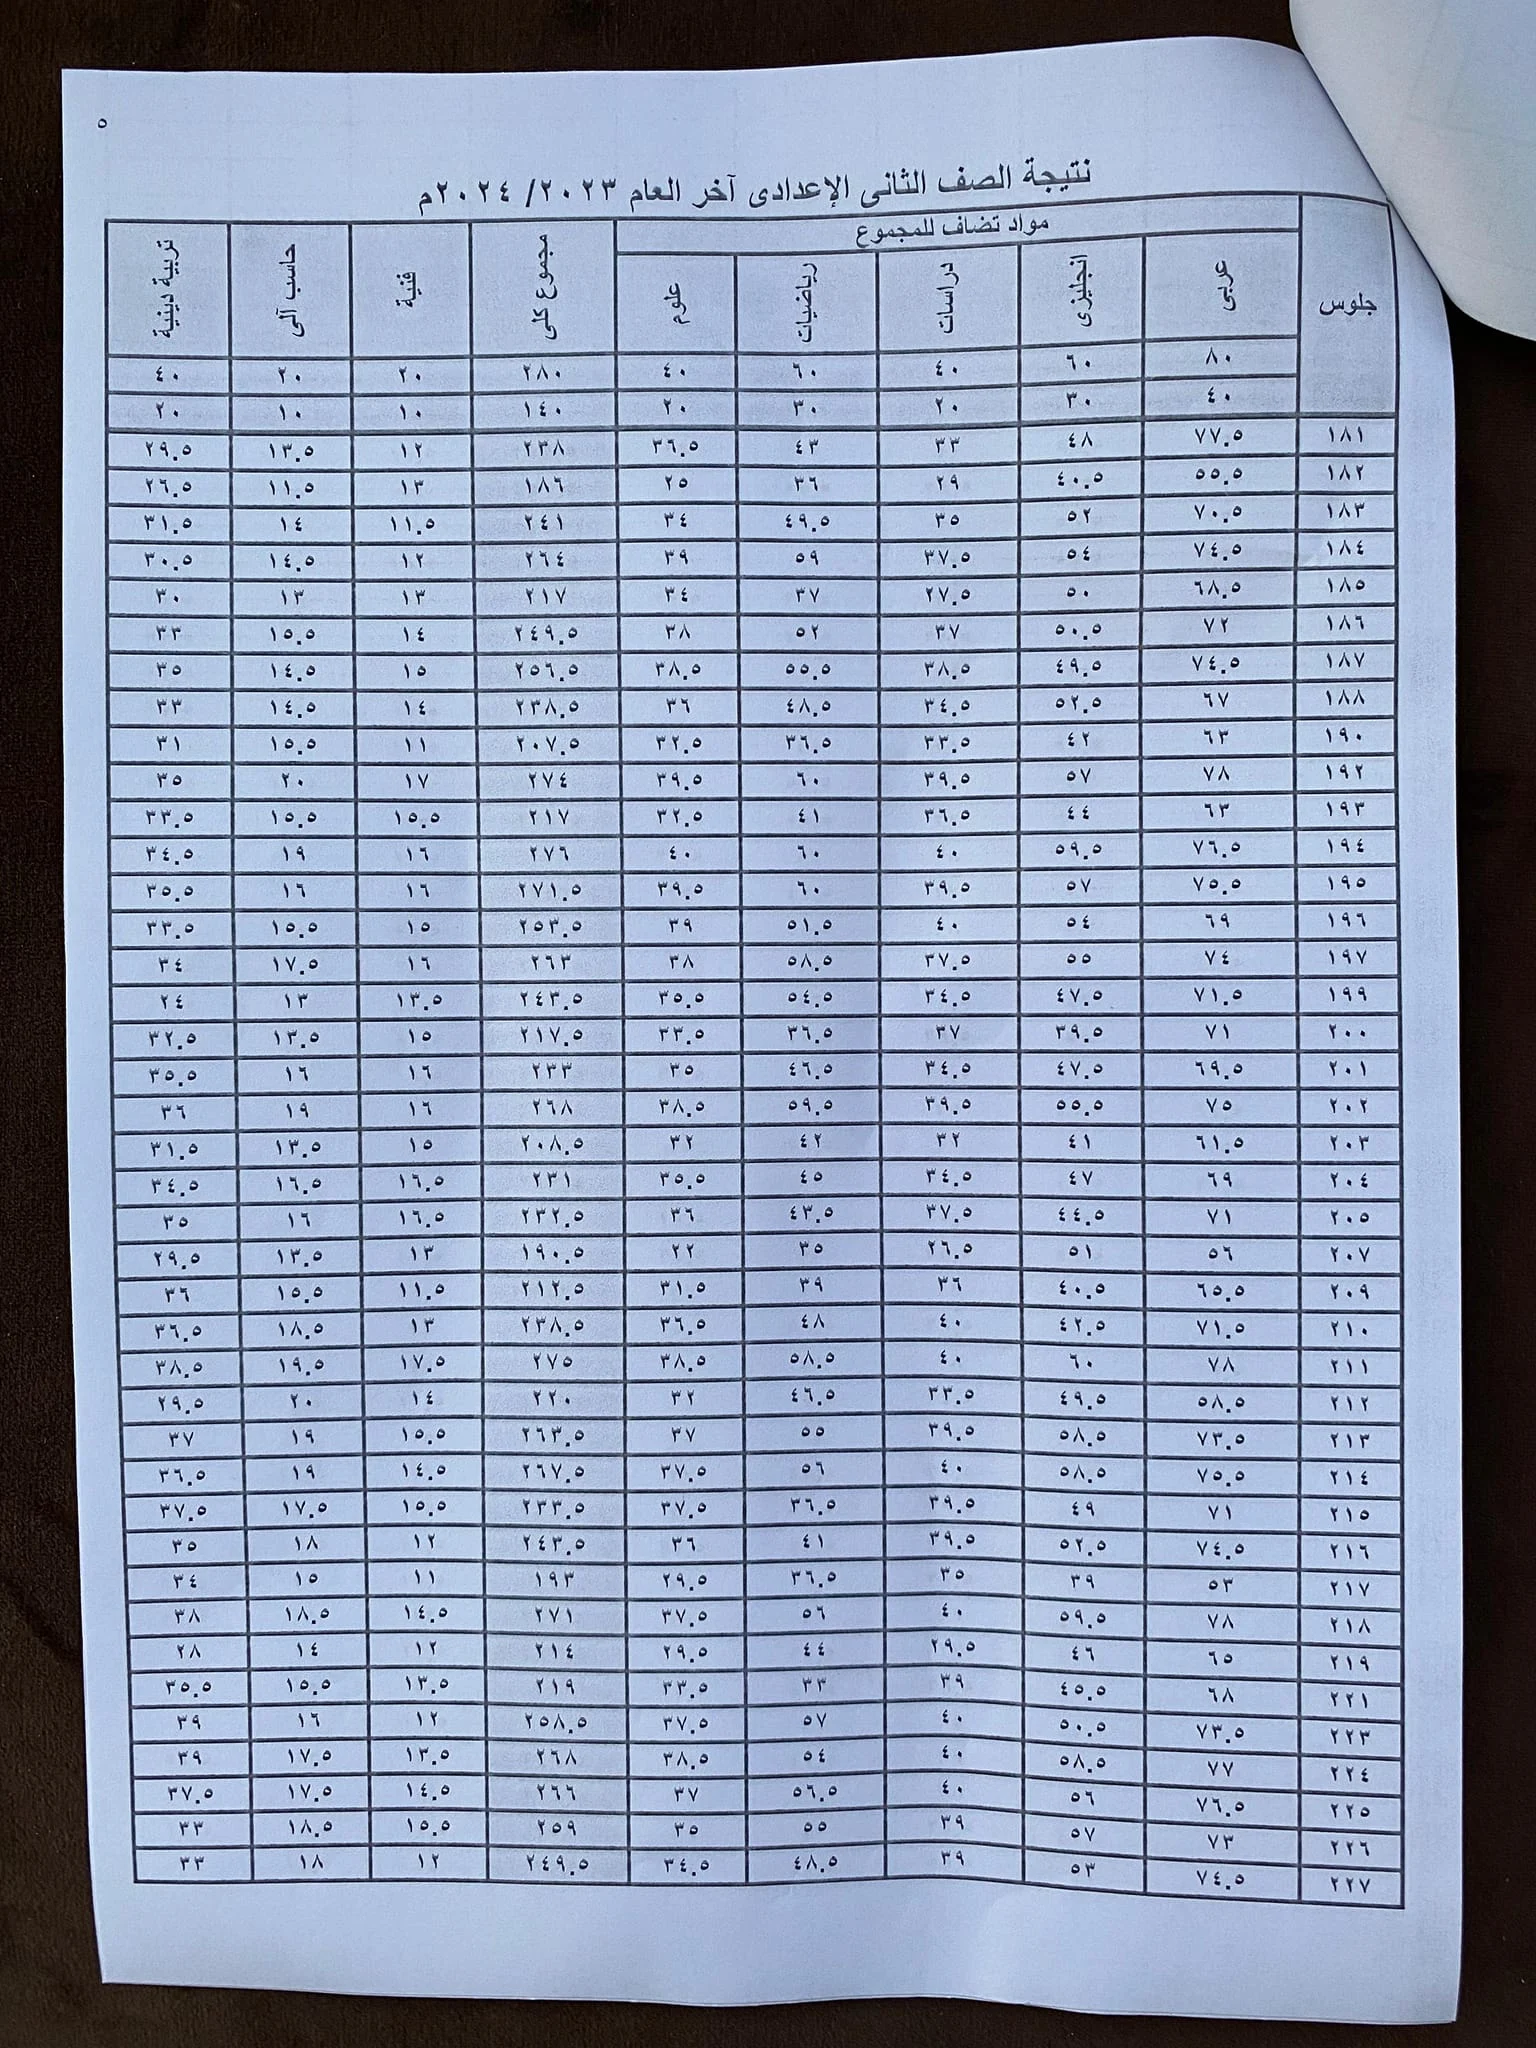 ٥
نتيجة الصف الثانى الإعدادى آخر العام ٢٠٢٣/ ٢٠٢٤م
جلوس مواد تضاف للمجموع مجموع كلى فنية حاسب آلى تربية دينية
عربى انجليزى دراسات رياضيات علوم
٨٠ ٦٠ ٤٠ ٦٠ ٤٠ ٢٨٠ ٢٠ ٢٠ ٤٠
٤٠ ٣٠ ٢٠ ٣٠ ٢٠ ١٤٠ ١٠ ١٠ ٢٠
١٨١ ٧٧.٥ ٤٨ ٣٣ ٤٣ ٣٦.٥ ٢٣٨ ١٢ ١٣.٥ ٢٩.٥
١٨٢ ٥٥.٥ ٤٠.٥ ٢٩ ٣٦ ٢٥ ١٨٦ ١٣ ١١.٥ ٢٦.٥
١٨٣ ٧٠.٥ ٥٢ ٣٥ ٤٩.٥ ٣٤ ٢٤١ ١١.٥ ١٤ ٣١.٥
١٨٤ ٧٤.٥ ٥٤ ٣٧.٥ ٥٩ ٣٩ ٢٦٤ ١٢ ١٤.٥ ٣٠.٥
١٨٥ ٦٨.٥ ٥٠ ٢٧.٥ ٣٧ ٣٤ ٢١٧ ١٣ ١٣ ٣٠
١٨٦ ٧٢ ٥٠.٥ ٣٧ ٥٢ ٣٨ ٢٤٩.٥ ١٤ ١٥.٥ ٣٣
١٨٧ ٧٤.٥ ٤٩.٥ ٣٨.٥ ٥٥.٥ ٣٨.٥ ٢٥٦.٥ ١٥ ١٤.٥ ٣٥
١٨٨ ٦٧ ٥٢.٥ ٣٤.٥ ٤٨.٥ ٣٦ ٢٣٨.٥ ١٤ ١٤.٥ ٣٣
١٩٠ ٦٣ ٤٢ ٣٣.٥ ٣٦.٥ ٣٢.٥ ٢٠٧.٥ ١١ ١٥.٥ ٣١
١٩٢ ٧٨ ٥٧ ٣٩.٥ ٦٠ ٣٩.٥ ٢٧٤ ١٧ ٢٠ ٣٥
١٩٣ ٦٣ ٤٤ ٣٦.٥ ٤١ ٣٢.٥ ٢١٧ ١٥.٥ ١٥.٥ ٣٣.٥
١٩٤ ٧٦.٥ ٥٩.٥ ٤٠ ٦٠ ٤٠ ٢٧٦ ١٦ ١٩ ٣٤.٥
١٩٥ ٧٥.٥ ٥٧ ٣٩.٥ ٦٠ ٣٩.٥ ٢٧١.٥ ١٦ ١٦ ٣٥.٥
١٩٦ ٦٩ ٥٤ ٤٠ ٥١.٥ ٣٩ ٢٥٣.٥ ١٥ ١٥.٥ ٣٣.٥
١٩٧ ٧٤ ٥٥ ٣٧.٥ ٥٨.٥ ٣٨ ٢٦٣ ١٦ ١٧.٥ ٣٤
١٩٩ ٧١.٥ ٤٧.٥ ٣٤.٥ ٥٤.٥ ٣٥.٥ ٢٤٣.٥ ١٣.٥ ١٣ ٢٤
٢٠٠ ٧١ ٣٩.٥ ٣٧ ٣٦.٥ ٣٣.٥ ٢١٧.٥ ١٥ ١٣.٥ ٣٢.٥
٢٠١ ٦٩.٥ ٤٧.٥ ٣٤.٥ ٤٦.٥ ٣٥ ٢٣٣ ١٦ ١٦ ٣٥.٥
٢٠٢ ٧٥ ٥٥.٥ ٣٩.٥ ٥٩.٥ ٣٨.٥ ٢٦٨ ١٦ ١٩ ٣٦
٢٠٣ ٦١.٥ ٤١ ٣٢ ٤٢ ٣٢ ٢٠٨.٥ ١٥ ١٣.٥ ٣١.٥
٢٠٤ ٦٩ ٤٧ ٣٤.٥ ٤٥ ٣٥.٥ ٢٣١ ١٦.٥ ١٦.٥ ٣٤.٥
٢٠٥ ٧١ ٤٤.٥ ٣٧.٥ ٤٣.٥ ٣٦ ٢٣٢.٥ ١٦.٥ ١٦ ٣٥
٢٠٧ ٥٦ ٥١ ٢٦.٥ ٣٥ ٢٢ ١٩٠.٥ ١٣ ١٣.٥ ٢٩.٥
٢٠٩ ٦٥.٥ ٤٠.٥ ٣٦ ٣٩ ٣١.٥ ٢١٢.٥ ١١.٥ ١٥.٥ ٣٦
٢١٠ ٧١.٥ ٤٢.٥ ٤٠ ٤٨ ٣٦.٥ ٢٣٨.٥ ١٣ ١٨.٥ ٣٦.٥
٢١١ ٧٨ ٦٠ ٤٠ ٥٨.٥ ٣٨.٥ ٢٧٥ ١٧.٥ ١٩.٥ ٣٨.٥
٢١٢ ٥٨.٥ ٤٩.٥ ٣٣.٥ ٤٦.٥ ٣٢ ٢٢٠ ١٤ ٢٠ ٢٩.٥
٢١٣ ٧٣.٥ ٥٨.٥ ٣٩.٥ ٥٥ ٣٧ ٢٦٣.٥ ١٥.٥ ١٩ ٣٧
٢١٤ ٧٥.٥ ٥٨.٥ ٤٠ ٥٦ ٣٧.٥ ٢٦٧.٥ ١٤.٥ ١٩ ٣٦.٥
٢١٥ ٧١ ٤٩ ٣٩.٥ ٣٦.٥ ٣٧.٥ ٢٣٣.٥ ١٥.٥ ١٧.٥ ٣٧.٥
٢١٦ ٧٤.٥ ٥٢.٥ ٣٩.٥ ٤١ ٣٦ ٢٤٣.٥ ١٢ ١٨ ٣٥
٢١٧ ٥٣ ٣٩ ٣٥ ٣٦.٥ ٢٩.٥ ١٩٣ ١١ ١٥ ٣٤
٢١٨ ٧٨ ٥٩.٥ ٤٠ ٥٦ ٣٧.٥ ٢٧١ ١٤.٥ ١٨.٥ ٣٨
٢١٩ ٦٥ ٤٦ ٢٩.٥ ٤٤ ٢٩.٥ ٢١٤ ١٢ ١٤ ٢٨
٢٢١ ٦٨ ٤٥.٥ ٣٩ ٣٣ ٣٣.٥ ٢١٩ ١٣.٥ ١٥.٥ ٣٥.٥
٢٢٣ ٧٣.٥ ٥٠.٥ ٤٠ ٥٧ ٣٧.٥ ٢٥٨.٥ ١٢ ١٦ ٣٩
٢٢٤ ٧٧ ٥٨.٥ ٤٠ ٥٤ ٣٨.٥ ٢٦٨ ١٣.٥ ١٧.٥ ٣٩
٢٢٥ ٧٦.٥ ٥٦ ٤٠ ٥٦.٥ ٣٧ ٢٦٦ ١٤.٥ ١٧.٥ ٣٧.٥
٢٢٦ ٧٣ ٥٧ ٣٩ ٥٥ ٣٥ ٢٥٩ ١٥.٥ ١٨.٥ ٣٣
٢٢٧ ٧٤.٥ ٥٣ ٣٩ ٤٨.٥ ٣٤.٥ ٢٤٩.٥ ١٢ ١٨ ٣٣